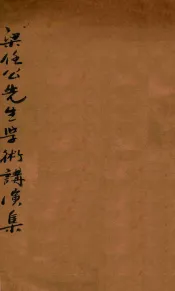 梁任公先生学術講演集